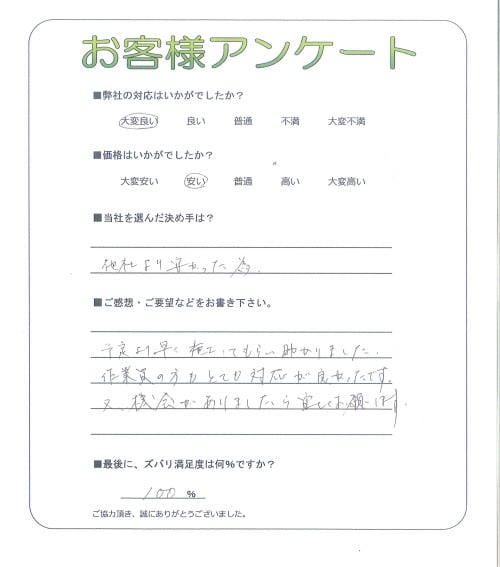 お客様アンケート
■弊社の対応はいかがでしたか?
大変良い 良い 普通 不満 大変不満
■価格はいかがでしたか?
大変安い 安い 普通 高い 大変高い
■当社を選んだ決め手は?
他社より安かった為.
■ご感想・ご要望などをお書き下さい。
予定より早く施工してもらい助かりました.
作業員の方もとても対応が良かったです。
又、機会がありましたら宜しくお願いします。
■最後に、ズバリ満足度は何%ですか?
100 %
ご協力頂き、誠にありがとうございました。